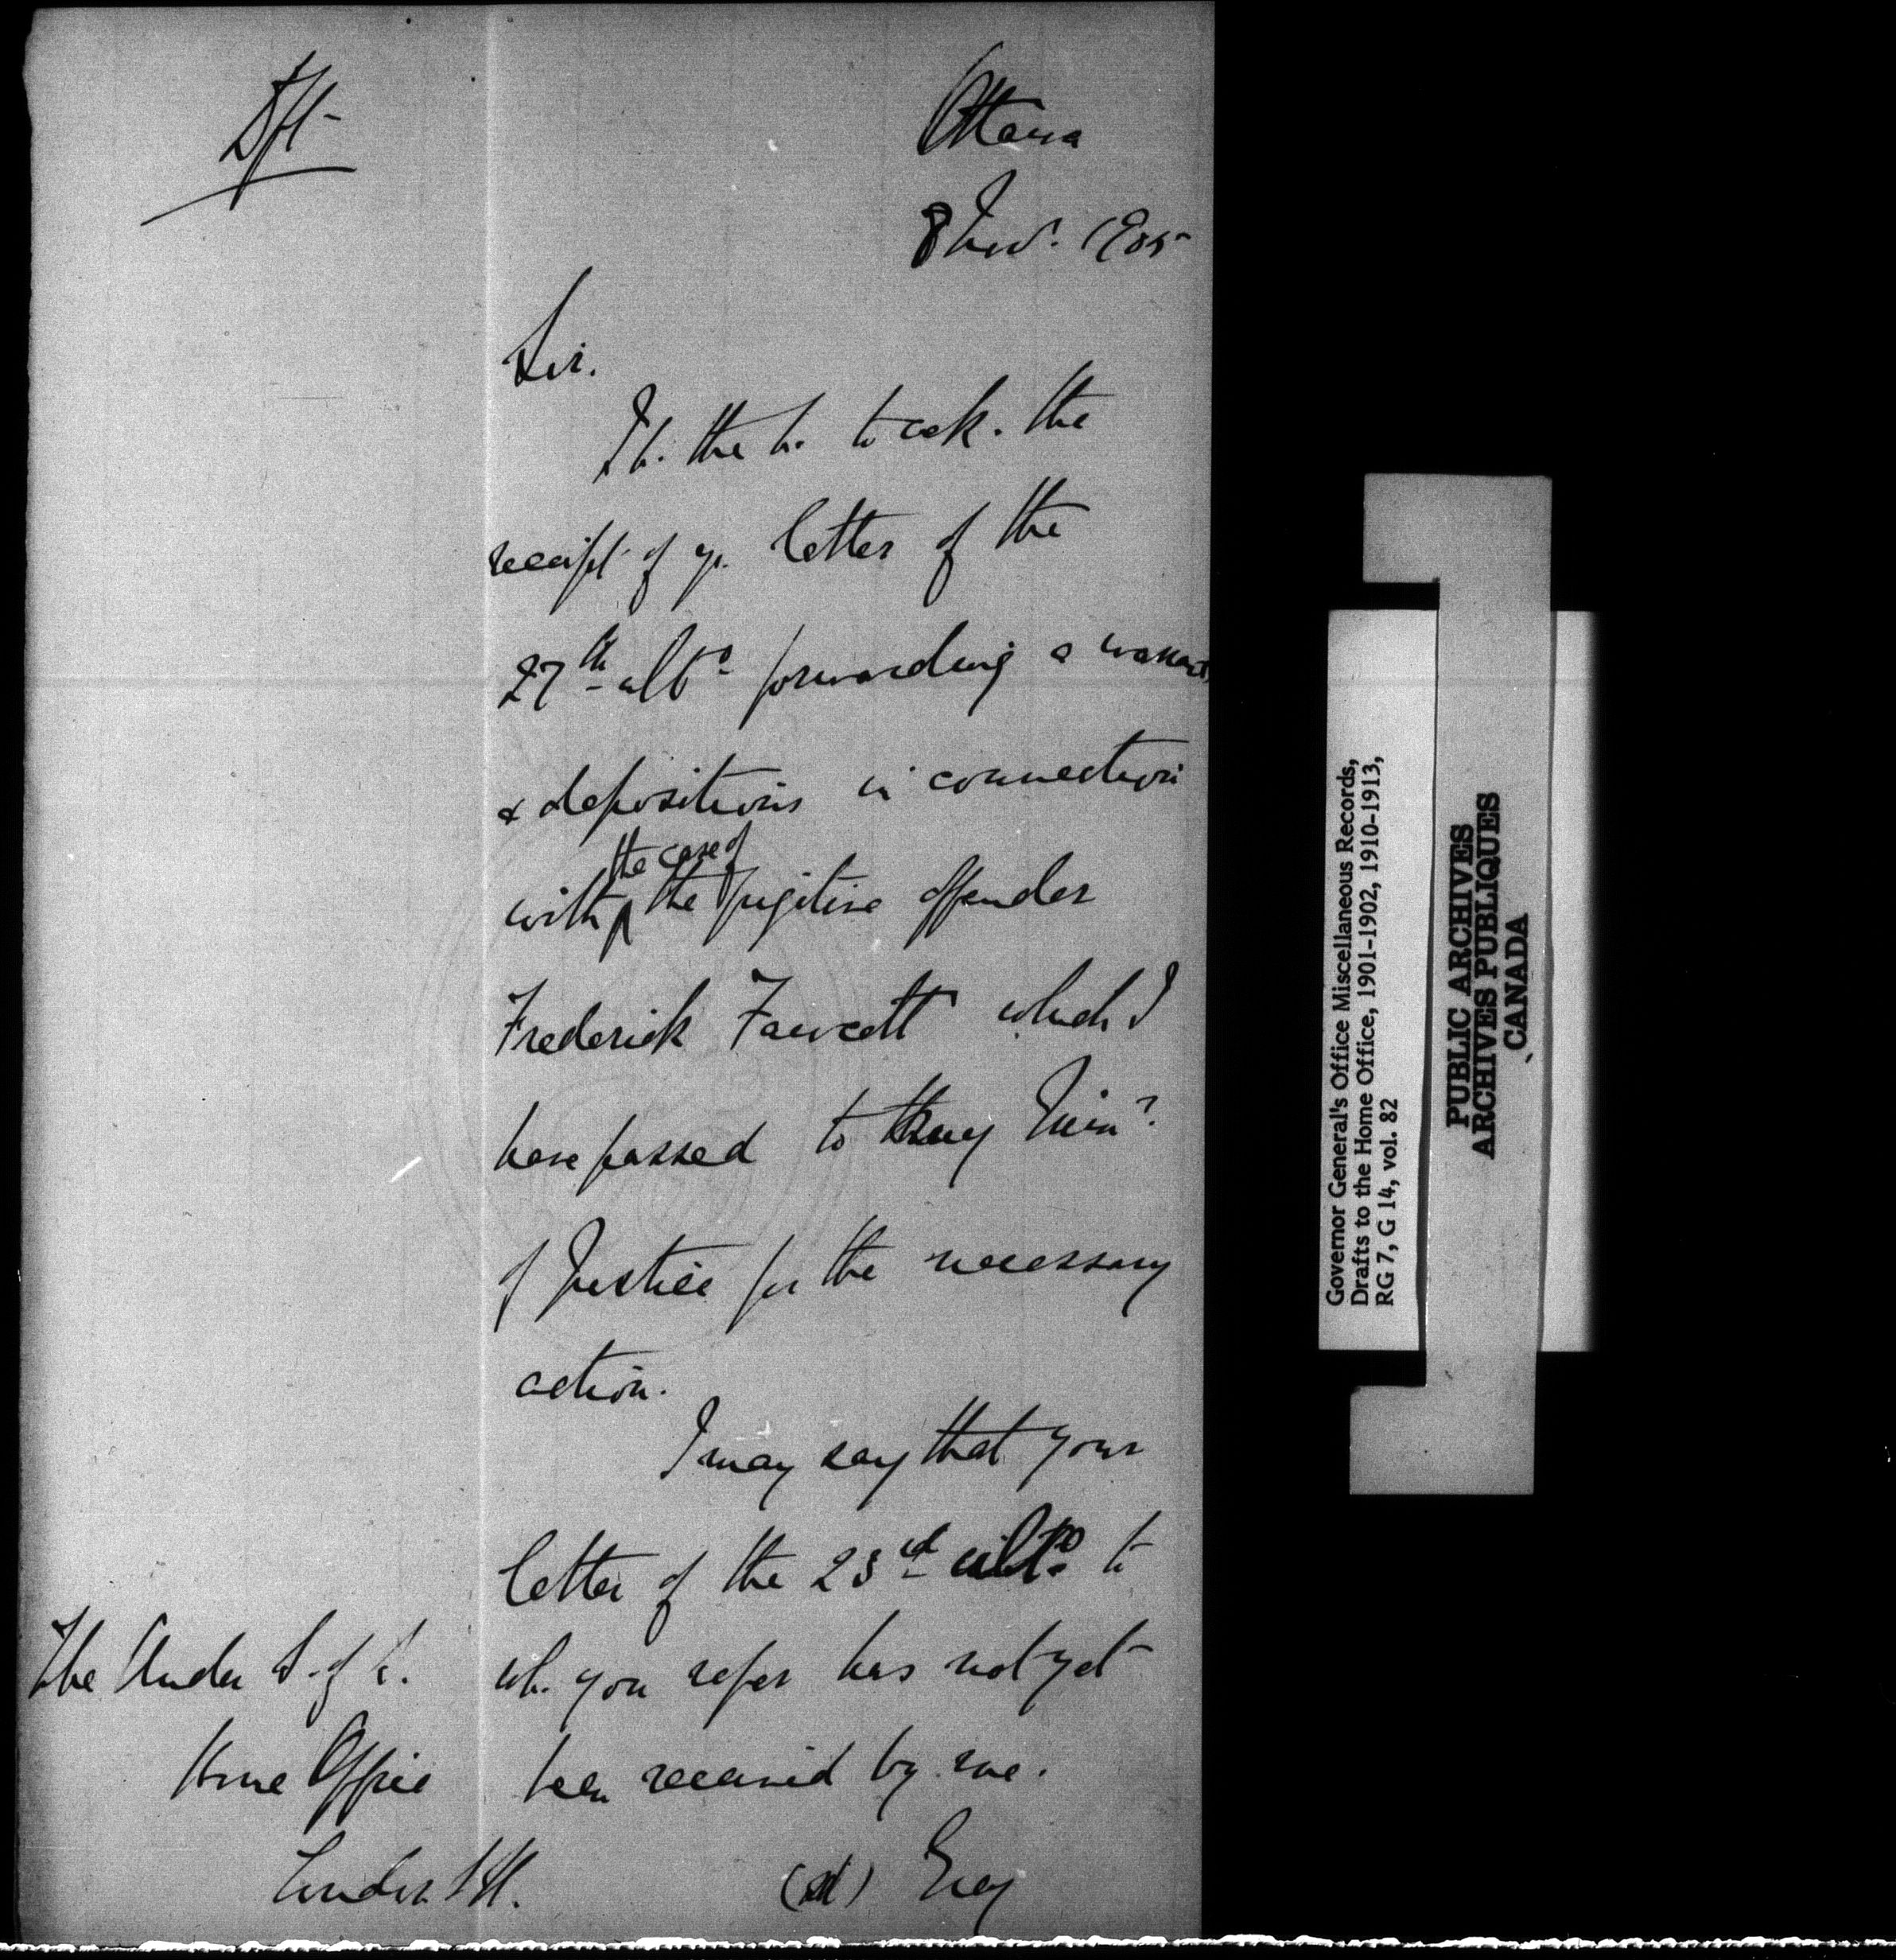 Dft-
Ottawa
8 Nov. 1905
Sir.
I h. the h. to ack. the
receipt of yr. letter of the
27th ulto forwarding a warrant
& depositions in connection
the case of
with the fugitive offender
Frederick Fawcett which I
have passed to my Minr
of Justice for the necessary
action.
I may say that your
letter of the 23rd ulto to
wh. you refer has not yet
been received by me.
(sd) Grey
The Under S. of S.
Home Office
London S.W.
Governor General's Office Miscellaneous Records,
Drafts to the Home Office, 1901-1902, 1910-1913,
RG 7, G 14, vol. 82
PUBLIC ARCHIVES
ARCHIVES PUBLIQUES
CANADA